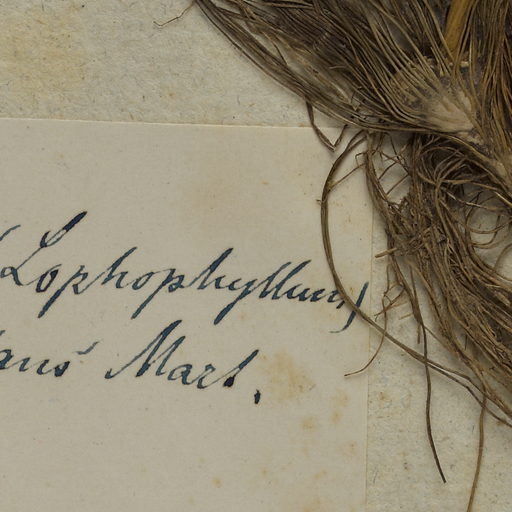 (Lophophyllum)
Mart.